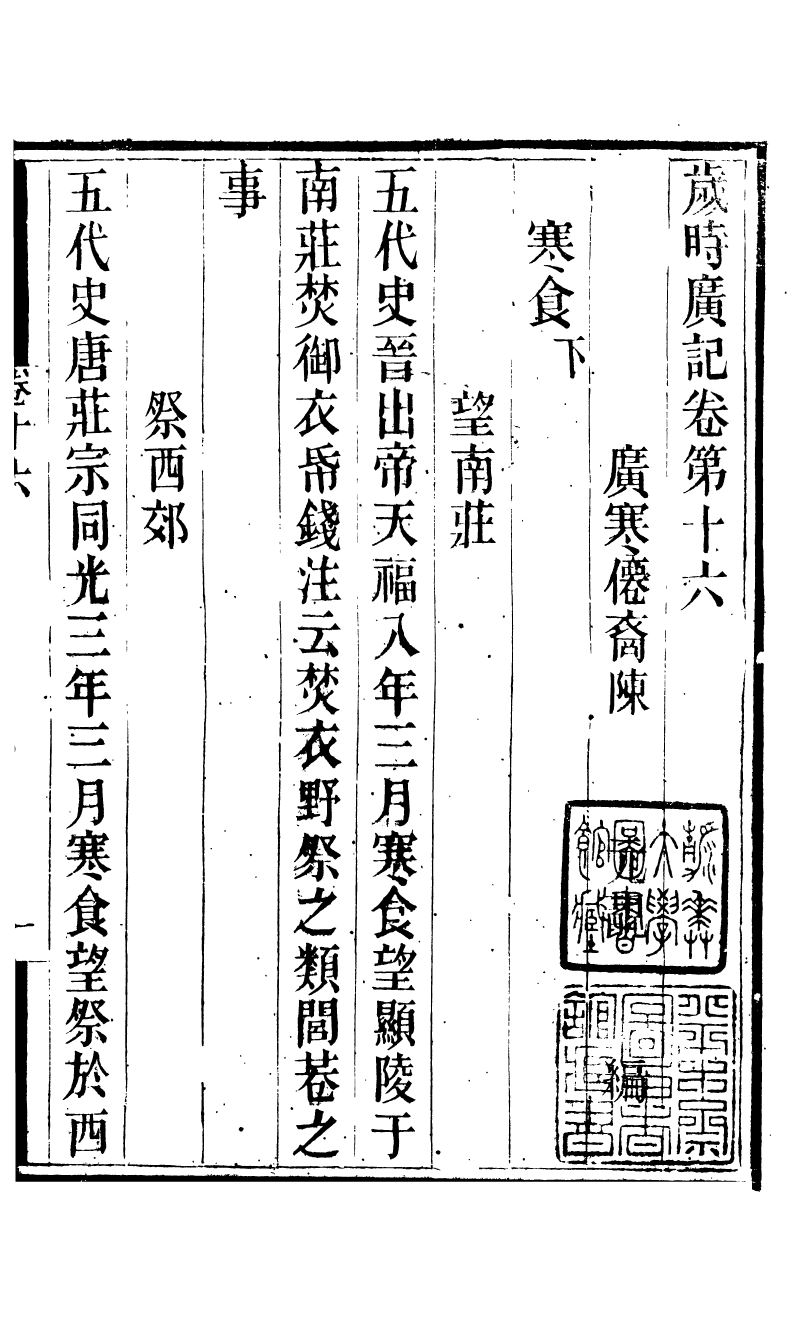 歲時廣記卷第十六
廣寒僊裔陳 編
寒食下
望南莊
五代史晉出帝天福八年三月寒食望顯陵于
南莊焚御衣帋錢注云焚衣野祭之類閭巷之
事
祭西郊
五代史唐莊宗同光三年三月寒食望祭於西
卷十六
一